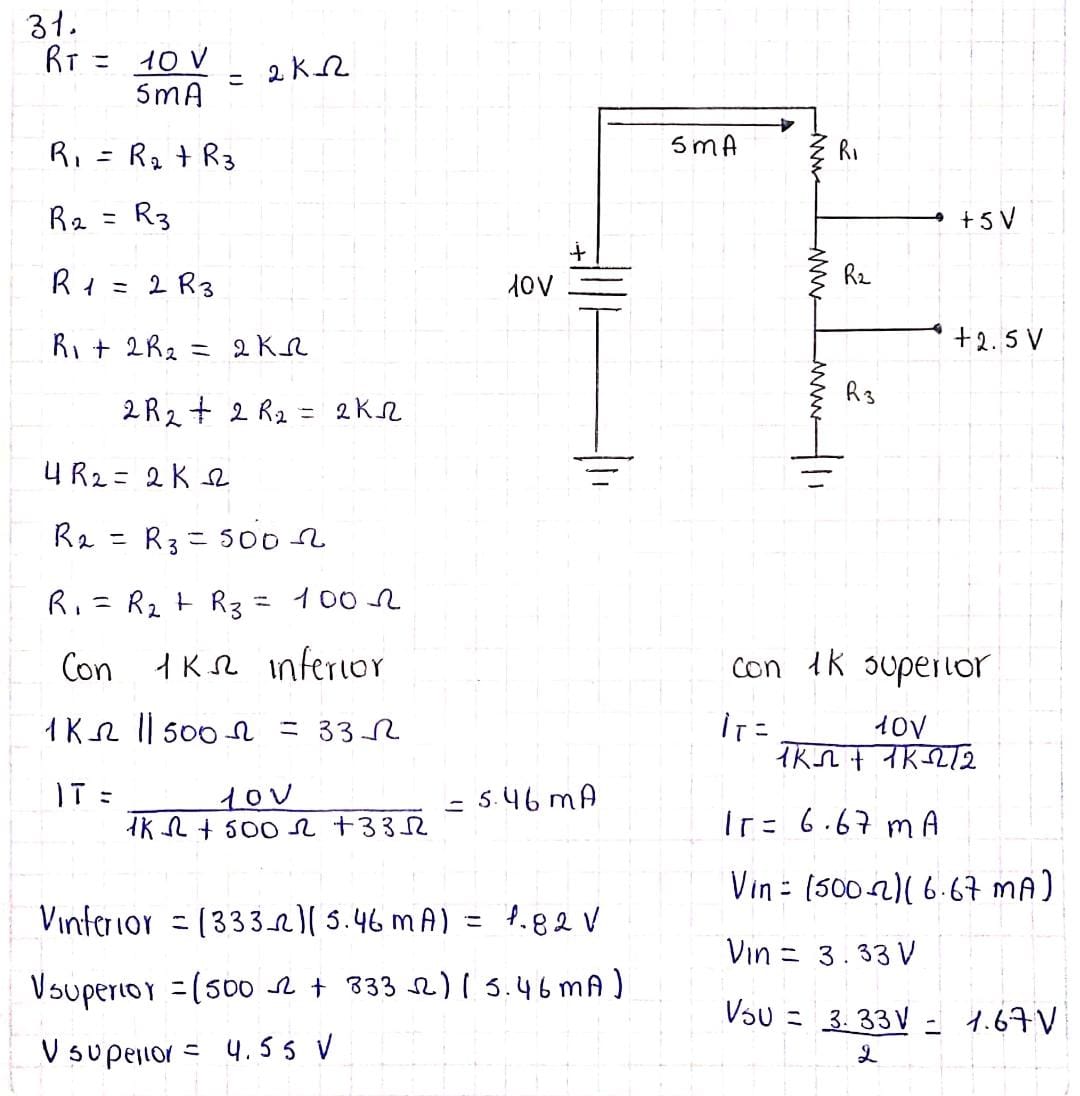 31.
RT = 10 V / 5mA = 2 K Ω
R1 = R2 + R3
R2 = R3
R1 = 2 R3
R1 + 2R2 = 2KΩ
2R2 + 2R2 = 2KΩ
4R2 = 2K Ω
R2 = R3 = 500 Ω
R1 = R2 + R3 = 100 Ω
5mA
R1
+5V
10V
+
R2
+2.5V
R3
Con 1KΩ inferior
1KΩ || 500Ω = 33Ω
IT = 10V / 1KΩ + 500Ω + 33Ω = 5.46 mA
Vinferior = (333Ω)(5.46 mA) = 1.82 V
Vsuperior = (500 Ω + 333 Ω) (5.46mA)
Vsuperior = 4.55 V
con 1K superior
IT = 10V / 1KΩ + 1KΩ/2
IT = 6.67 mA
Vin = (500Ω)(6.67 mA)
Vin = 3.33V
VSU = 3.33V / 2 = 1.67V